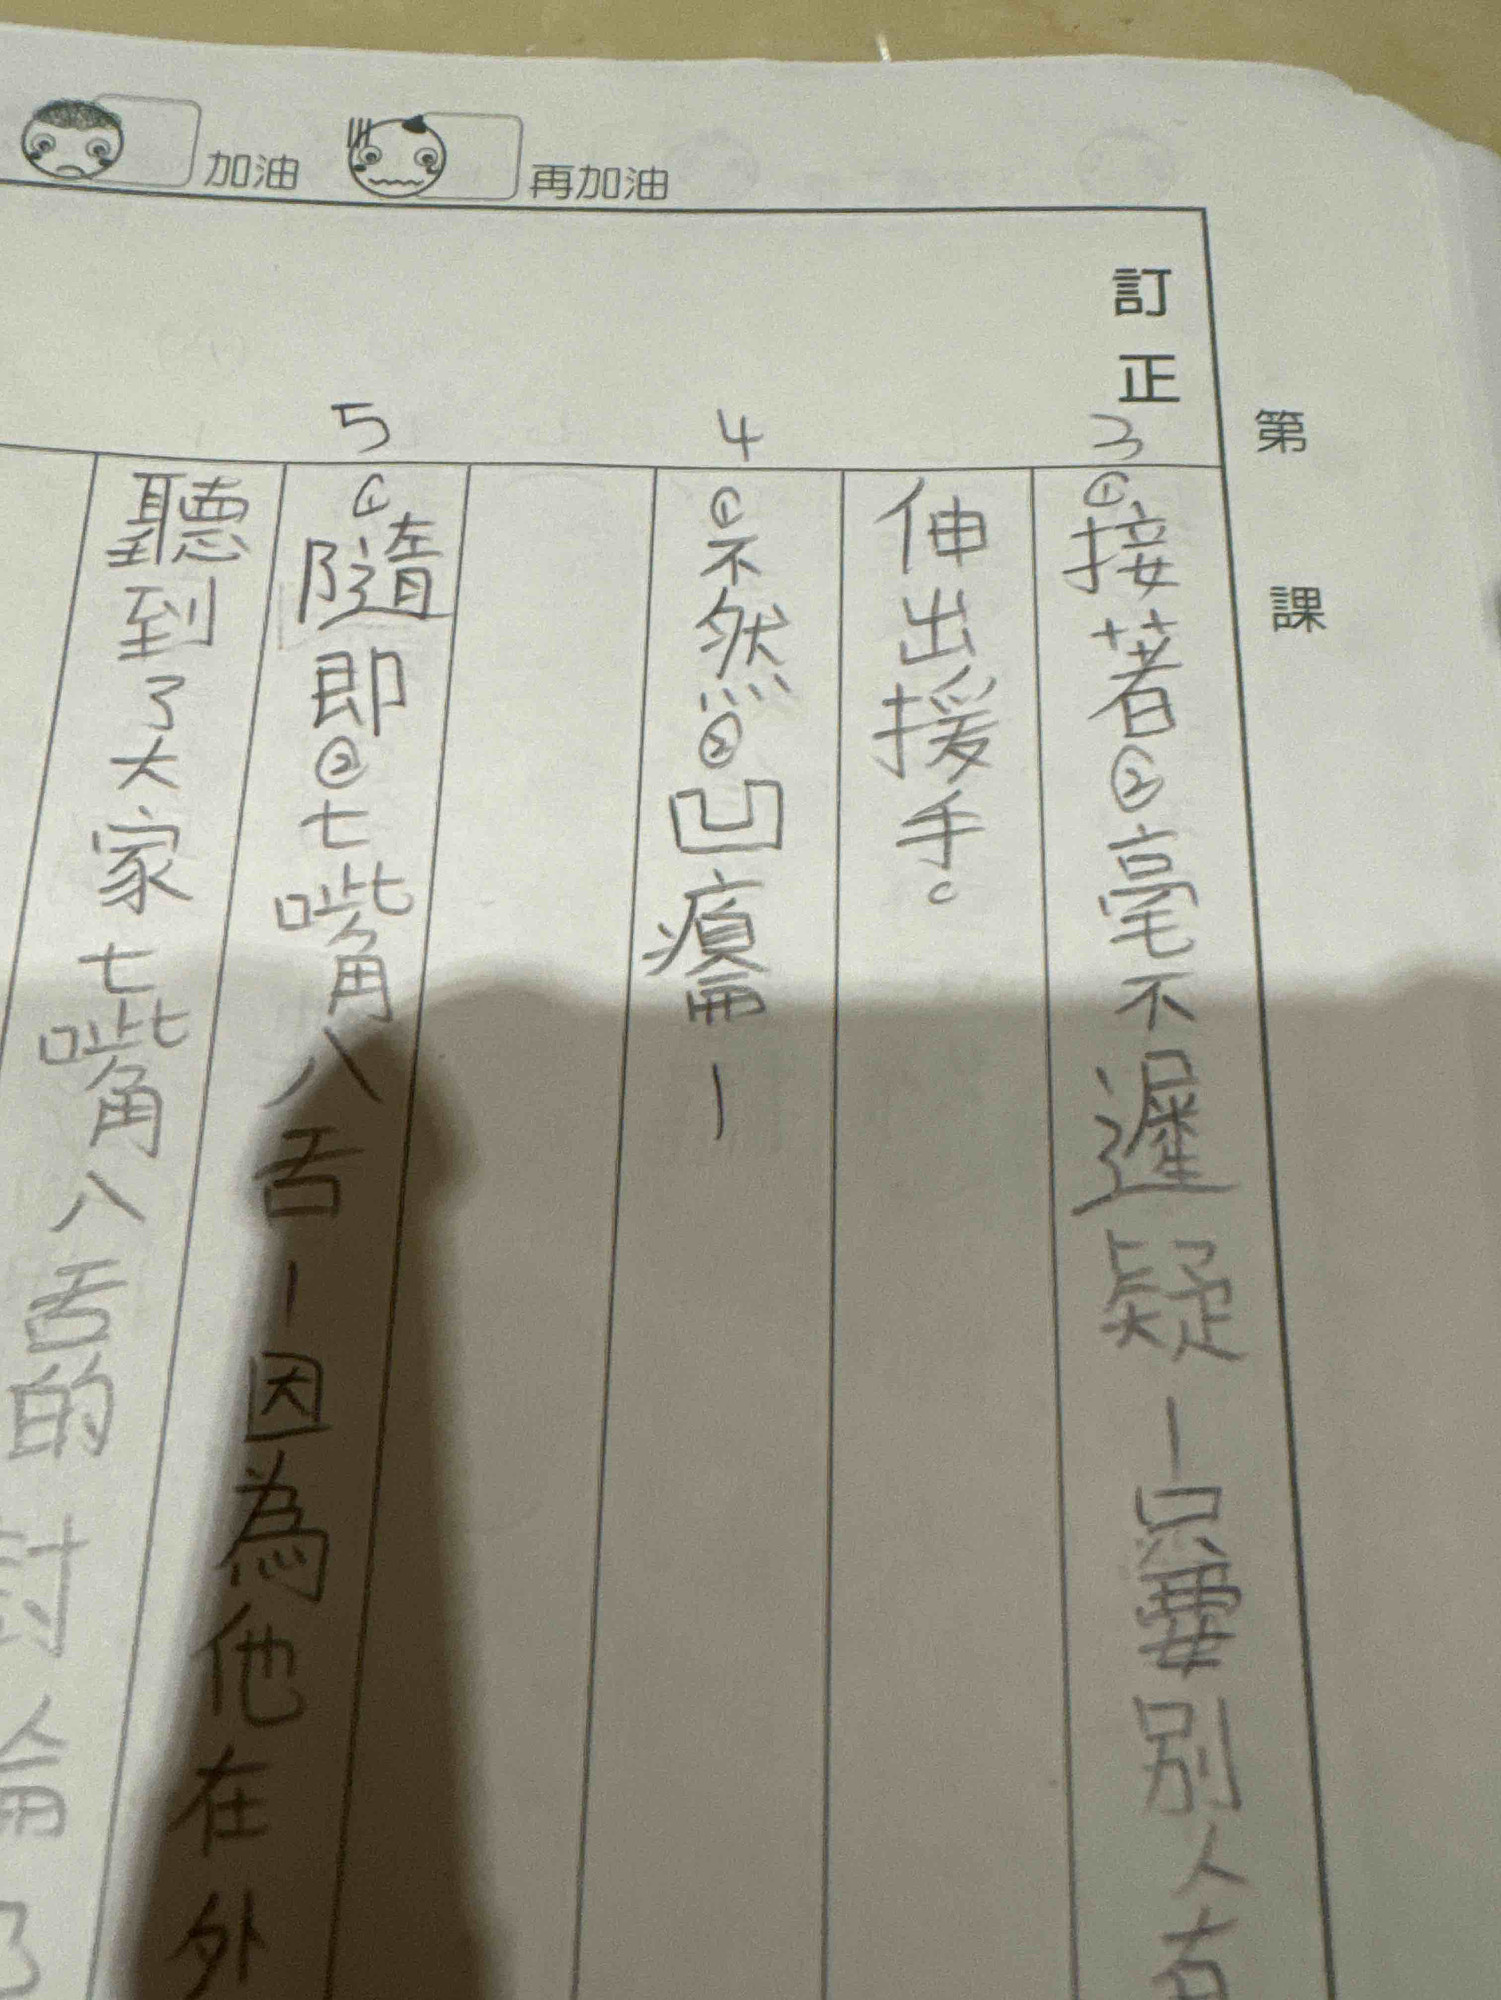 加油 再加油
第 課
訂正
3 ①接著②毫不遲疑－只要別人有
伸出援手。
4 ①不然②凹
5 ①隨即②七嘴八舌－因為他在外
聽到了大家七嘴八舌的討論